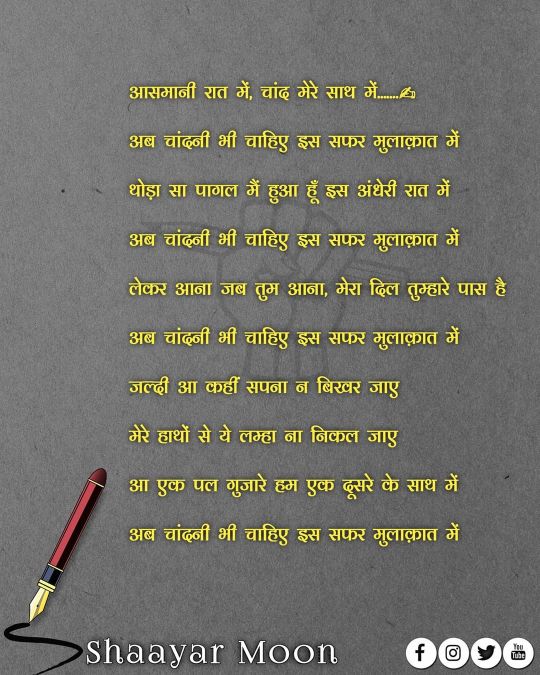 आसमानी रात में, चांद मेरे साथ में.......✍
अब चांदनी भी चाहिए इस सफर मुलाक़ात में
थोड़ा सा पागल मैं हुआ हूँ इस अंधेरी रात में
अब चांदनी भी चाहिए इस सफर मुलाक़ात में
लेकर आना जब तुम आना, मेरा दिल तुम्हारे पास है
अब चांदनी भी चाहिए इस सफर मुलाक़ात में
जल्दी आ कहीं सपना न बिखर जाए
मेरे हाथों से ये लम्हा ना निकल जाए
आ एक पल गुजारे हम एक दूसरे के साथ में
अब चांदनी भी चाहिए इस सफर मुलाक़ात में
Shaayar Moon
You Tube